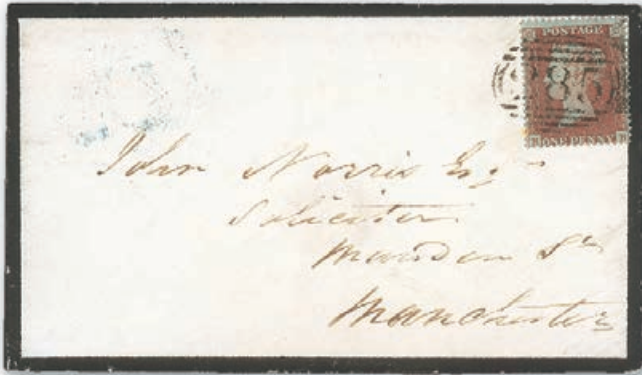 POSTAGE
285
ONE PENNY
John Norris Esq
Solicitor
Marsden St
Manchester